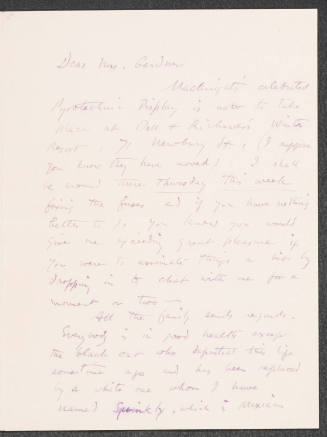 Dear Mrs. Gardner
Macknight's celebrated
Pyrotechnic Display is now to take
place at Doll & Richards's Winter
Resort, 71 Newbury St, (I suppose
you know they have moved). I shall
be around there Thursday this week
fixing the fuses and if you have nothing
better to do, you know you would
give me exceeding great pleasure if
you were to animate things a bit by
dropping in to chat with me for a
moment or two.
All the family sends regards.
Everybody is in good health except
the black cat who departed this life
sometime ago and has been replaced
by a white one whom I have
named, which is Mexican